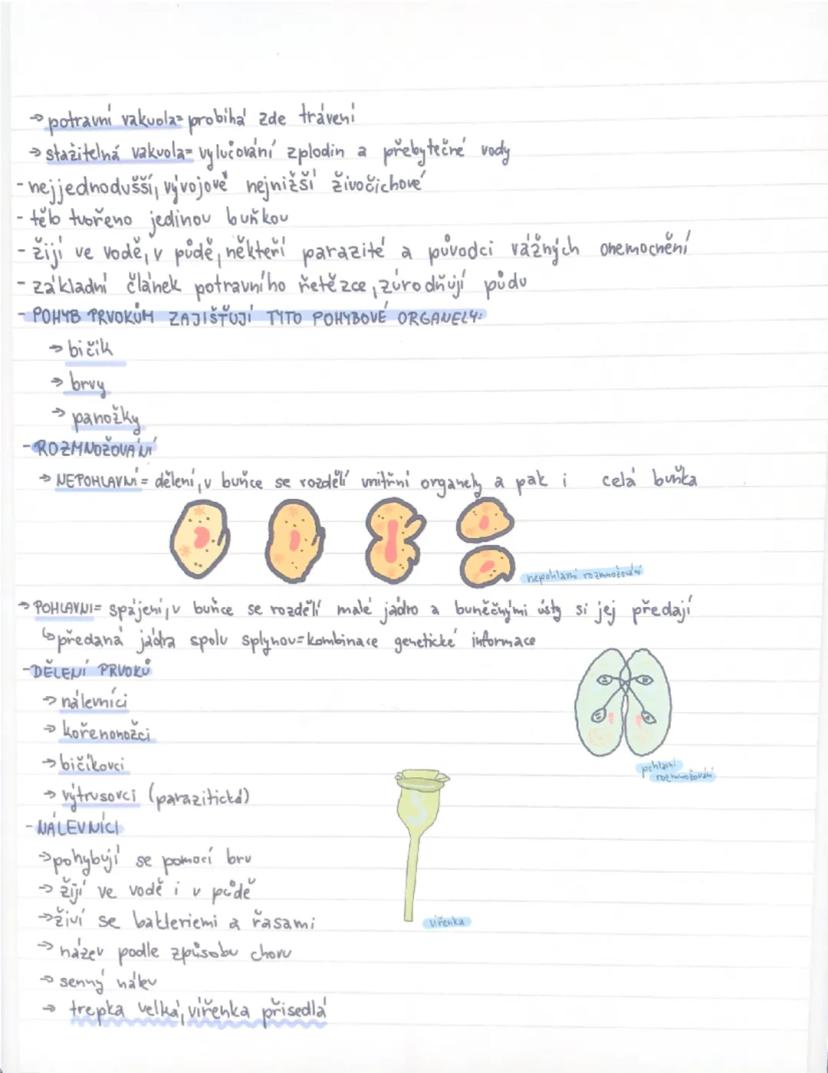 → potravní vakuola= probíhá zde trávení
→ stažitelná vakuola= vylučování zplodin a přebytečné vody
- nejjednodušší, vývojově nejnižší živočichové
- tělo tvořeno jedinou buňkou
- žijí ve vodě, v půdě, někteří parazité a původci vážných onemocnění
- základní článek potravního řetězce, zúrodňují půdu
- POHYB PRVOKŮM ZAJIŠŤUJÍ TYTO POHYBOVÉ ORGANELY:
→ bičík
→ brvy
→ panožky
- ROZMNOŽOVÁNÍ
→ NEPOHLAVNÍ = dělení, v buňce se rozdělí vnitřní organely a pak i celá buňka
nepohlavní rozmnožování
→ POHLAVNÍ= spájení, v buňce se rozdělí malé jádro a buněčnými ústy si jej předají
↳ předaná jádra spolu splynou=kombinace genetické informace
- DĚLENÍ PRVOKŮ
→ nálevníci
→ kořenonožci
→ bičíkovci
pohlavní
rozmnožování
→ výtrusovci (parazitická)
- NÁLEVNÍCI
→ pohybují se pomocí brv
→ žijí ve vodě i v půdě
→ živí se bakteriemi a řasami
vířenka
→ název podle způsobu chovu
→ senný nálev
→ trepka velká, vířenka přisedlá